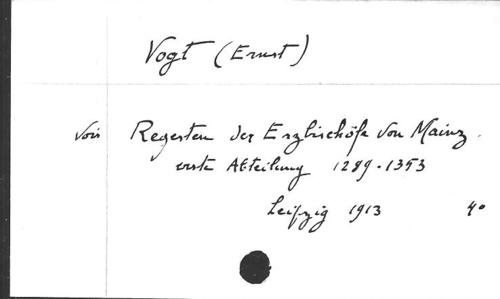 Vogt (Ernst)
Voir Regesten der Erzbischöfe von Mainz.
erste Abteilung 1289-1353
Leipzig 1913 4°